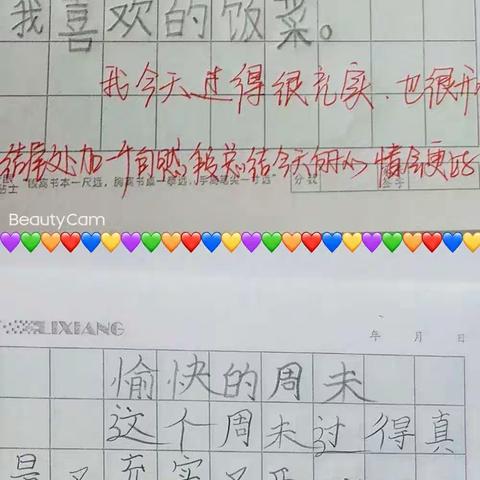 我喜欢的饭菜。
我今天过得很充实，也很开
结尾处加一个自然段总结今天的心情会更好
分数
签字
BeautyCam
LIXIANG
年 月 日
愉快的周未
这个周未过得真
是又充实又开